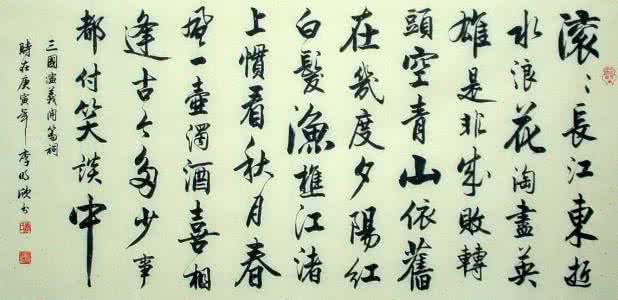 滚〻長江東逝
水浪花淘盡英
雄是非成敗轉
頭空青山依舊
在幾度夕陽紅
白髮漁樵江渚
上慣看秋月春
風一壺濁酒喜相
逢古今多少事
都付笑談中
三國演義開篇詞
時在庚寅年 李明书